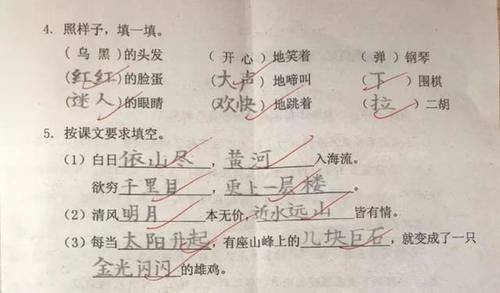 4. 照样子，填一填。
（乌黑）的头发 （开心）地笑着 （弹）钢琴
（红红）的脸蛋 （大声）地啼叫 （下）围棋
（迷人）的眼睛 （欢快）地跳着 （拉）二胡
5. 按课文要求填空。
（1）白日依山尽，黄河入海流。
欲穷千里目，更上一层楼。
（2）清风明月本无价，近水远山皆有情。
（3）每当太阳升起，有座山峰上的几块巨石，就变成了一只
金光闪闪的雄鸡。